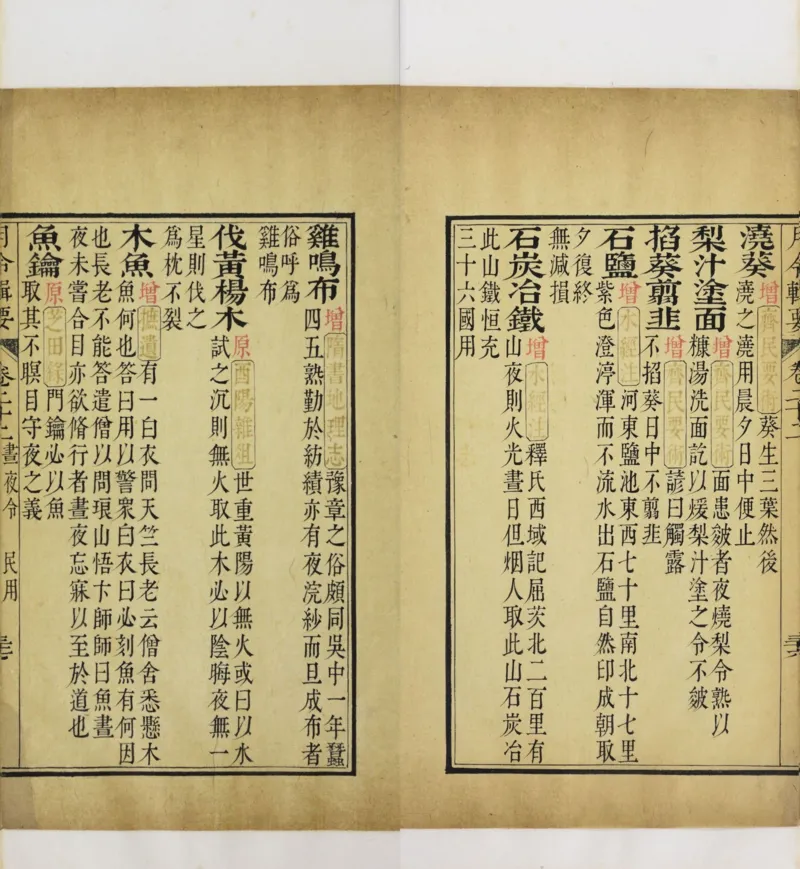 月令輯要 卷二十二
澆葵 增 齊民要術 葵生三葉然後
澆之澆用晨夕日中便止
梨汁塗面 增 齊民要術 面患皴者夜燒梨令熟以
糠湯洗面訖以煖梨汁塗之令不皴
掐葵翦韭 增 齊民要術 諺曰觸露
不掐葵日中不翦韭
石鹽 增 水經注 河東鹽池東西七十里南北十七里
紫色澄渟渾而不流水出石鹽自然印成朝取
夕復終
無減損
石炭冶鐵 增 水經注 釋氏西域記屈茨北二百里有
山夜則火光晝日但烟人取此山石炭冶
此山鐵恒充
三十六國用
雞鳴布 增 隋書地理志 豫章之俗頗同吳中一年蠶
四五熟勤於紡績亦有夜浣紗而旦成布者
俗呼爲
雞鳴布
伐黃楊木 原 酉陽雜俎 世重黃陽以無火或曰以水
試之沉則無火取此木必以陰晦夜無一
星則伐之
爲枕不裂
木魚 增 摭遺 有一白衣問天竺長老云僧舍悉懸木
魚何也答曰用以警衆白衣曰必刻魚有何因
也長老不能答遣僧以問琅山悟卞師師曰魚晝
夜未嘗合目亦欲脩行者晝夜忘寐以至於道也
魚鑰 原 芝田錄 門鑰必以魚
取其不瞑目守夜之義
月令輯要 卷二十二 晝夜令 民用